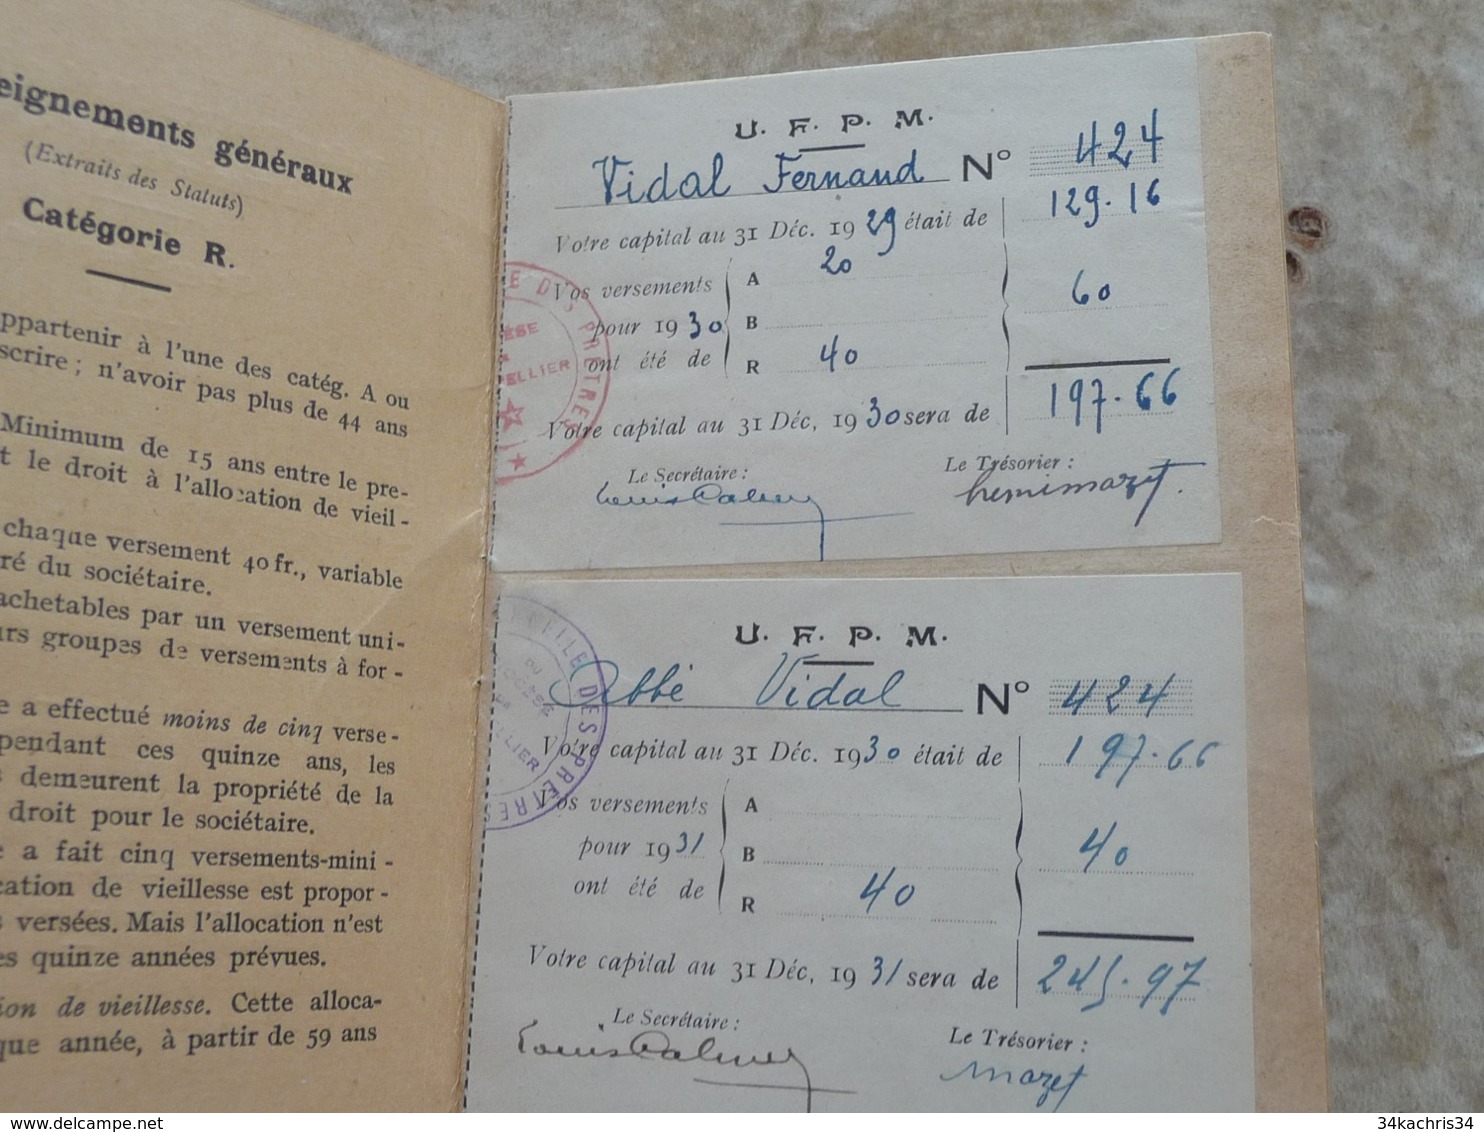 eignements généraux
(Extraits des Statuts)
Catégorie R.
ppartenir à l'une des catég. A ou
scrire ; n'avoir pas plus de 44 ans
Minimum de 15 ans entre le pre-
t le droit à l'allocation de vieil-
chaque versement 40 fr., variable
ré du sociétaire.
achetables par un versement uni-
urs groupes de versements à for-
e a effectué moins de cinq verse-
pendant ces quinze ans, les
s demeurent la propriété de la
droit pour le sociétaire.
e a fait cinq versements-mini-
cation de vieillesse est propor-
s versées. Mais l'allocation n'est
es quinze années prévues.
ion de vieillesse. Cette alloca-
que année, à partir de 59 ans
U. F. P. M.
Vidal Fernand N° 424
Votre capital au 31 Déc. 1929 était de 129.16
Vos versements A 20
pour 1930 B 60
ont été de R 40
Votre capital au 31 Déc, 1930 sera de 197.66
Le Secrétaire : Le Trésorier :
E DES PRÊTRES
ÈSE
ELLIER
U. F. P. M.
Abbé Vidal N° 424
Votre capital au 31 Déc. 1930 était de 197.66
Vos versements A
pour 1931 B 40
ont été de R 40
Votre capital au 31 Déc, 1931 sera de 245.97
Le Secrétaire : Le Trésorier :
Mazet
DES PRÊTRES
DU
LLIER
delcampe.net
34kachris34